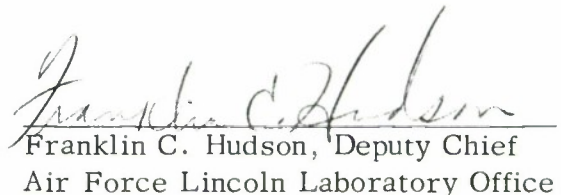 Franklin C. Hudson
Franklin C. Hudson, Deputy Chief
Air Force Lincoln Laboratory Office